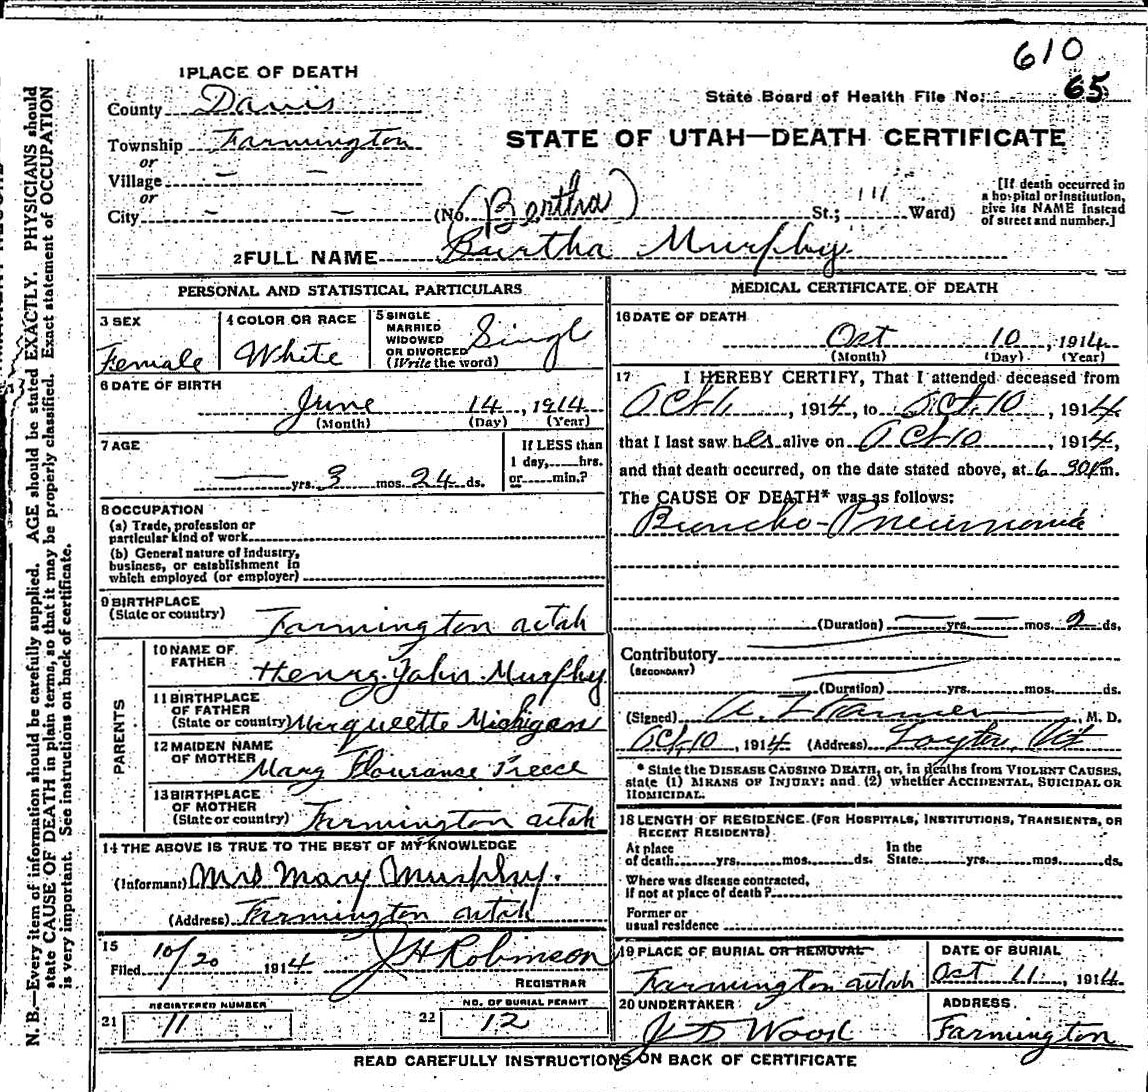 610
65
State Board of Health File No.
STATE OF UTAH—DEATH CERTIFICATE
1 PLACE OF DEATH
County Davis
Township Farmington
or
Village — —
or
City — —
(No. (Bertha) St.; Ward)
[If death occurred in
a hospital or institution,
give its NAME instead
of street and number.]
2 FULL NAME Burtha Murphy
PERSONAL AND STATISTICAL PARTICULARS
3 SEX
Female
4 COLOR OR RACE
White
5 SINGLE
MARRIED
WIDOWED
OR DIVORCED
(Write the word)
Singl
6 DATE OF BIRTH
June 14, 1914
(Month) (Day) (Year)
7 AGE
— yrs. 3 mos. 24 ds.
If LESS than
1 day,.....hrs.
or.....min.?
8 OCCUPATION
(a) Trade, profession or
particular kind of work
(b) General nature of industry,
business, or establishment in
which employed (or employer)
9 BIRTHPLACE
(State or country)
Farmington utah
PARENTS
10 NAME OF
FATHER
Henry John Murphy
11 BIRTHPLACE
OF FATHER
(State or country) Marquette Michigan
12 MAIDEN NAME
OF MOTHER
Mary Flouranse Preece
13 BIRTHPLACE
OF MOTHER
(State or country) Farmington utah
14 THE ABOVE IS TRUE TO THE BEST OF MY KNOWLEDGE
(Informant) Mrs Mary Murphy.
(Address) Farmington utah
15
Filed 10/20 1914 J H Robinson
REGISTRAR
REGISTERED NUMBER
21 11
NO. OF BURIAL PERMIT
22 12
MEDICAL CERTIFICATE OF DEATH
16 DATE OF DEATH
Oct 10, 1914
(Month) (Day) (Year)
17 I HEREBY CERTIFY, That I attended deceased from
Oct 1, 1914, to Oct. 10, 1914
that I last saw her alive on Oct 10, 1914,
and that death occurred, on the date stated above, at 6 30 P m.
The CAUSE OF DEATH* was as follows:
Broncho-Pneumonia
(Duration) — yrs. — mos. 2 ds.
Contributory
(SECONDARY)
(Duration) yrs. mos. ds.
(Signed) M. D.
Oct. 10, 1914 (Address) Layton, Ut
* State the DISEASE CAUSING DEATH, or, in deaths from VIOLENT CAUSES,
state (1) MEANS OF INJURY; and (2) whether ACCIDENTAL, SUICIDAL OR
HOMICIDAL.
18 LENGTH OF RESIDENCE (FOR HOSPITALS, INSTITUTIONS, TRANSIENTS, OR
RECENT RESIDENTS)
At place
of death yrs. mos. ds.
In the
State yrs. mos. ds.
Where was disease contracted,
if not at place of death?
Former or
usual residence
19 PLACE OF BURIAL OR REMOVAL
Farmington utah
DATE OF BURIAL
Oct 11, 1914
20 UNDERTAKER
J D Wood
ADDRESS
Farmington
READ CAREFULLY INSTRUCTIONS ON BACK OF CERTIFICATE
N. B.—Every item of information should be carefully supplied. AGE should be stated EXACTLY. PHYSICIANS should
state CAUSE OF DEATH in plain terms, so that it may be properly classified. Exact statement of OCCUPATION
is very important. See instructions on back of certificate.